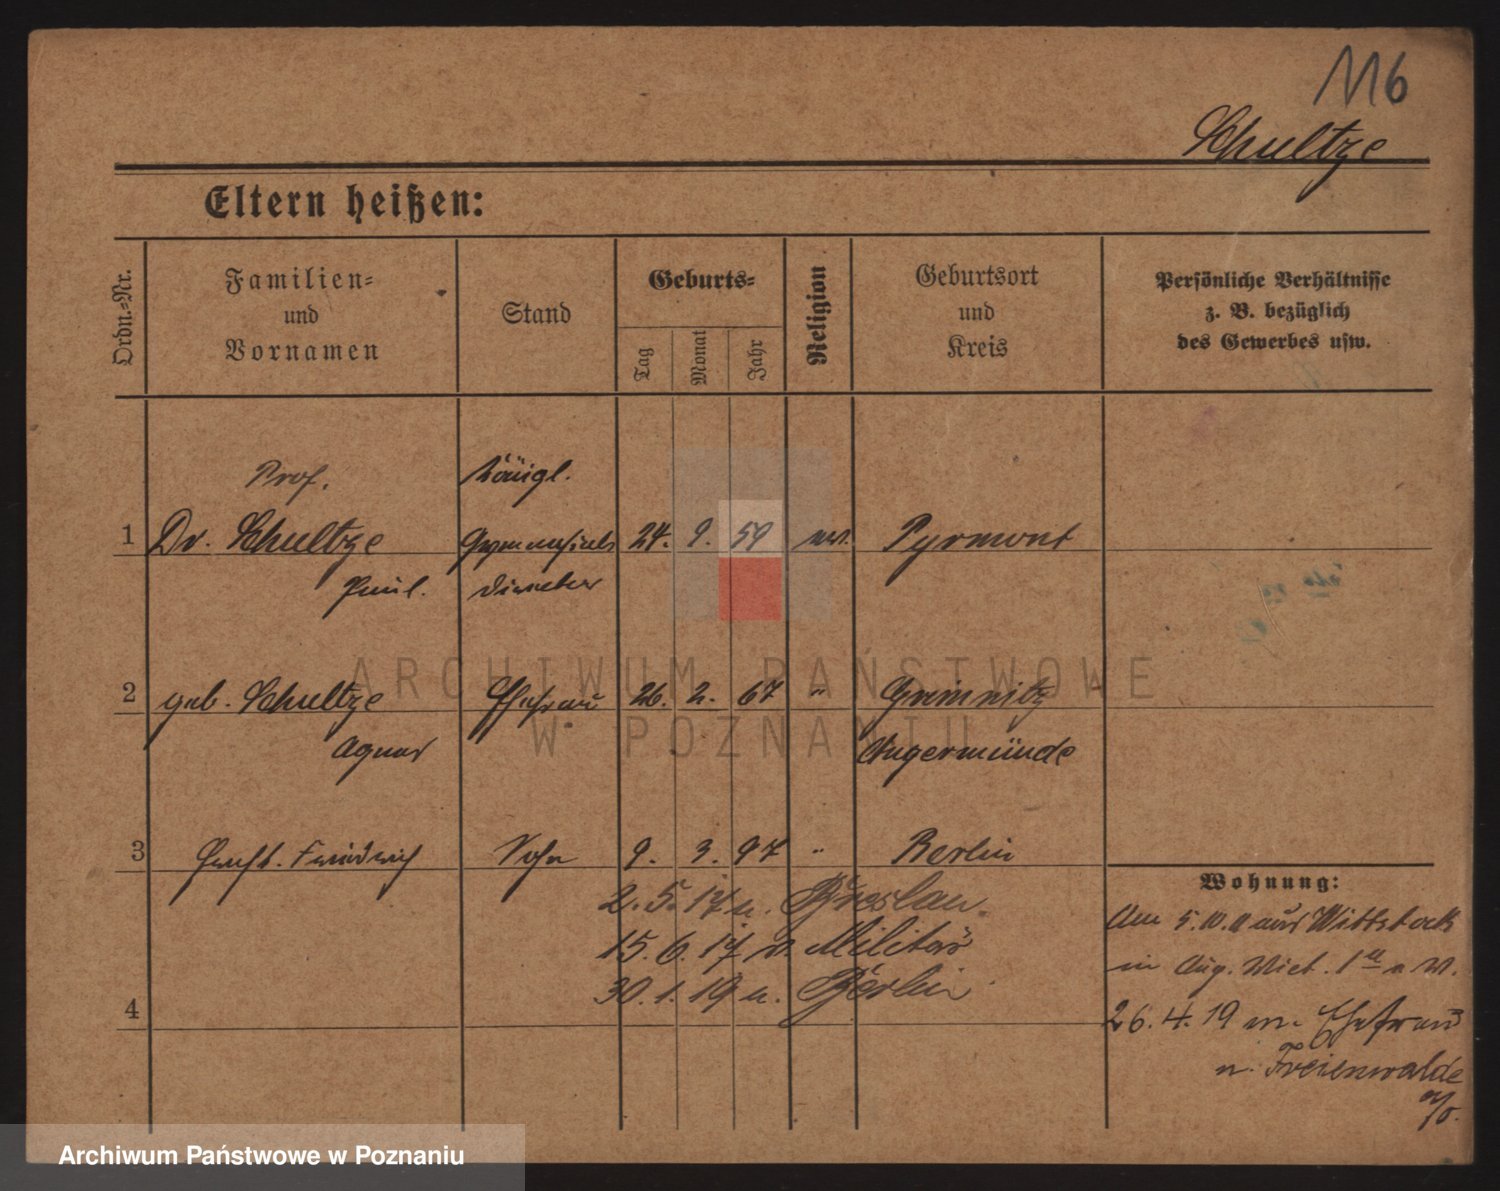 116
Schultze
Eltern heißen:
Ordn.-Nr.
Familien-
und
Vornamen
Stand
Geburts-
Tag
Monat
Jahr
Religion
Geburtsort
und
Kreis
Persönliche Verhältnisse
z. B. bezüglich
des Gewerbes usw.
Prof. Königl.
1 Dr. Schultze Gymnasial- 24. 9. 59 ev. Pyrmont
Paul. Direktor
2 geb. Schultze Ehefrau 26. 2. 67 " Grimnitz
Agnes Angermünde
3 Friedrich Sohn 9. 3. 97 " Berlin
2. 5. 17 n. Breslau.
15. 6. 17 v. Militär
30. 1. 19 n. Berlin
4
Wohnung:
Am 5. 10. 11 aus Wittstock
in Aug. Vict.
26. 4. 19 m. Ehefrau
n. Freienwalde
a/o.
ARCHIWUM PAŃSTWOWE
W POZNANIU
Archiwum Państwowe w Poznaniu